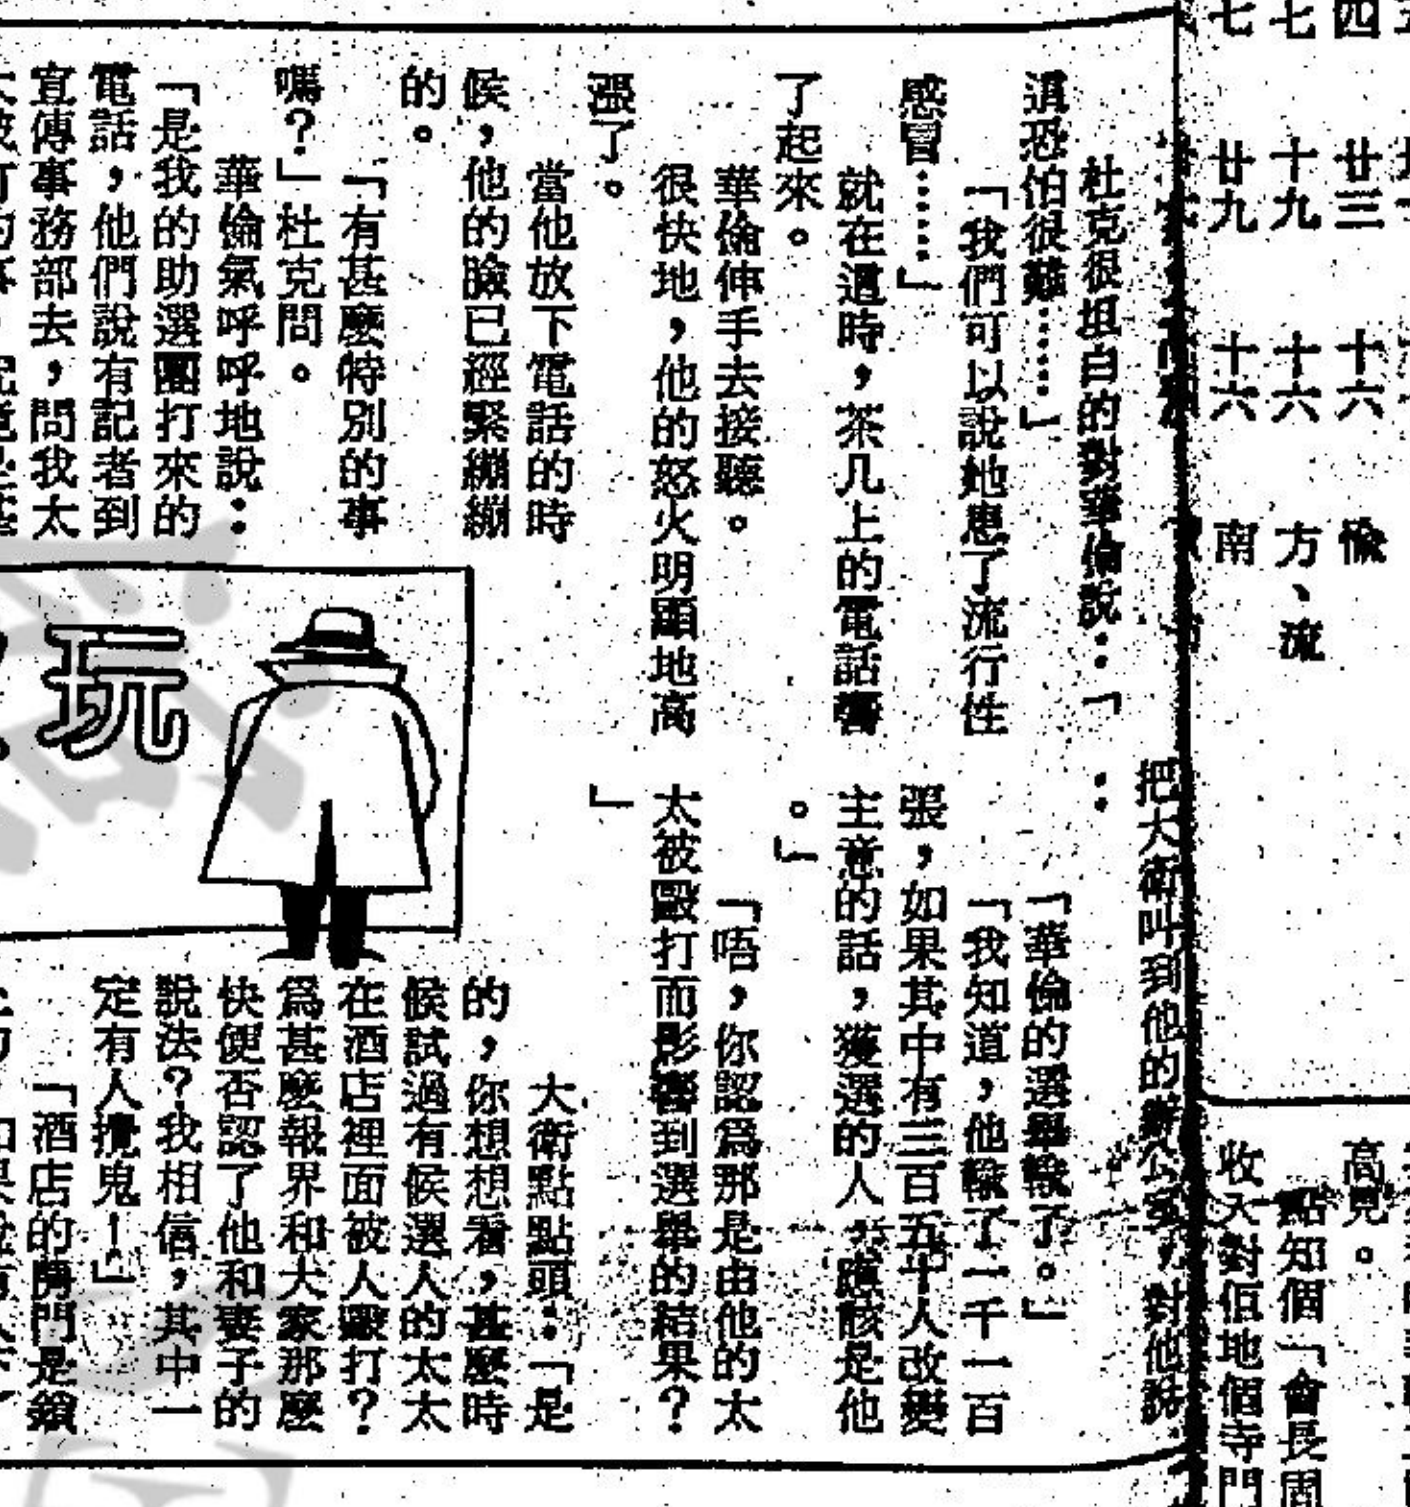 七
七
四
廿九
十九
廿三
十六
十六
十六
南
方、流
杜克很坦白的對華倫說：「
這恐怕很難……」
「我們可以說她患了流行性
感冒……」
就在這時，茶几上的電話響
了起來。
華倫伸手去接聽。
很快地，他的怒火明顯地高
漲了。
當他放下電話的時
候，他的臉已經緊繃繃
的。
「有甚麼特別的事
嗎？」杜克問。
華倫氣呼呼地說：
「是我的助選團打來的
電話，他們說有記者到
宣傳事務部去，問我太
玩
把大衛叫到他的辦公室，對他說
：
「華倫的選舉輸了。」
「我知道，他輸了一千一百
張，如果其中有三百五十人改變
主意的話，獲選的人，應該是他
。」
「唔，你認爲那是由他的太
太被毆打而影響到選舉的結果？
」
大衛點點頭：「是
的，你想想看，甚麼時
候試過有候選人的太太
在酒店裡面被人毆打？
爲甚麼報界和大家那麼
快便否認了他和妻子的
說法？我相信，其中一
定有人攪鬼！」
「酒店的房門是鎖
高見。
點知個「會長周
收入對佢地個寺門